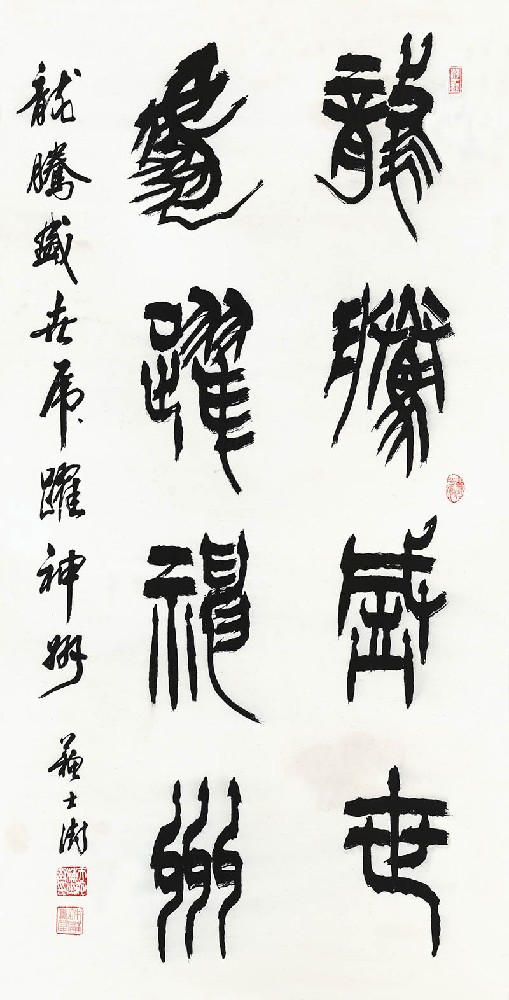 龍騰盛世
虎躍神州
龍騰盛世虎躍神州
蘇士澍